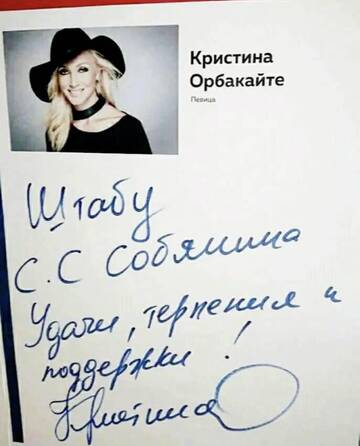 Кристина
Орбакайте
Певица
Штабу
С.С Собянина
Удачи, терпения и
поддержки !
Кристина